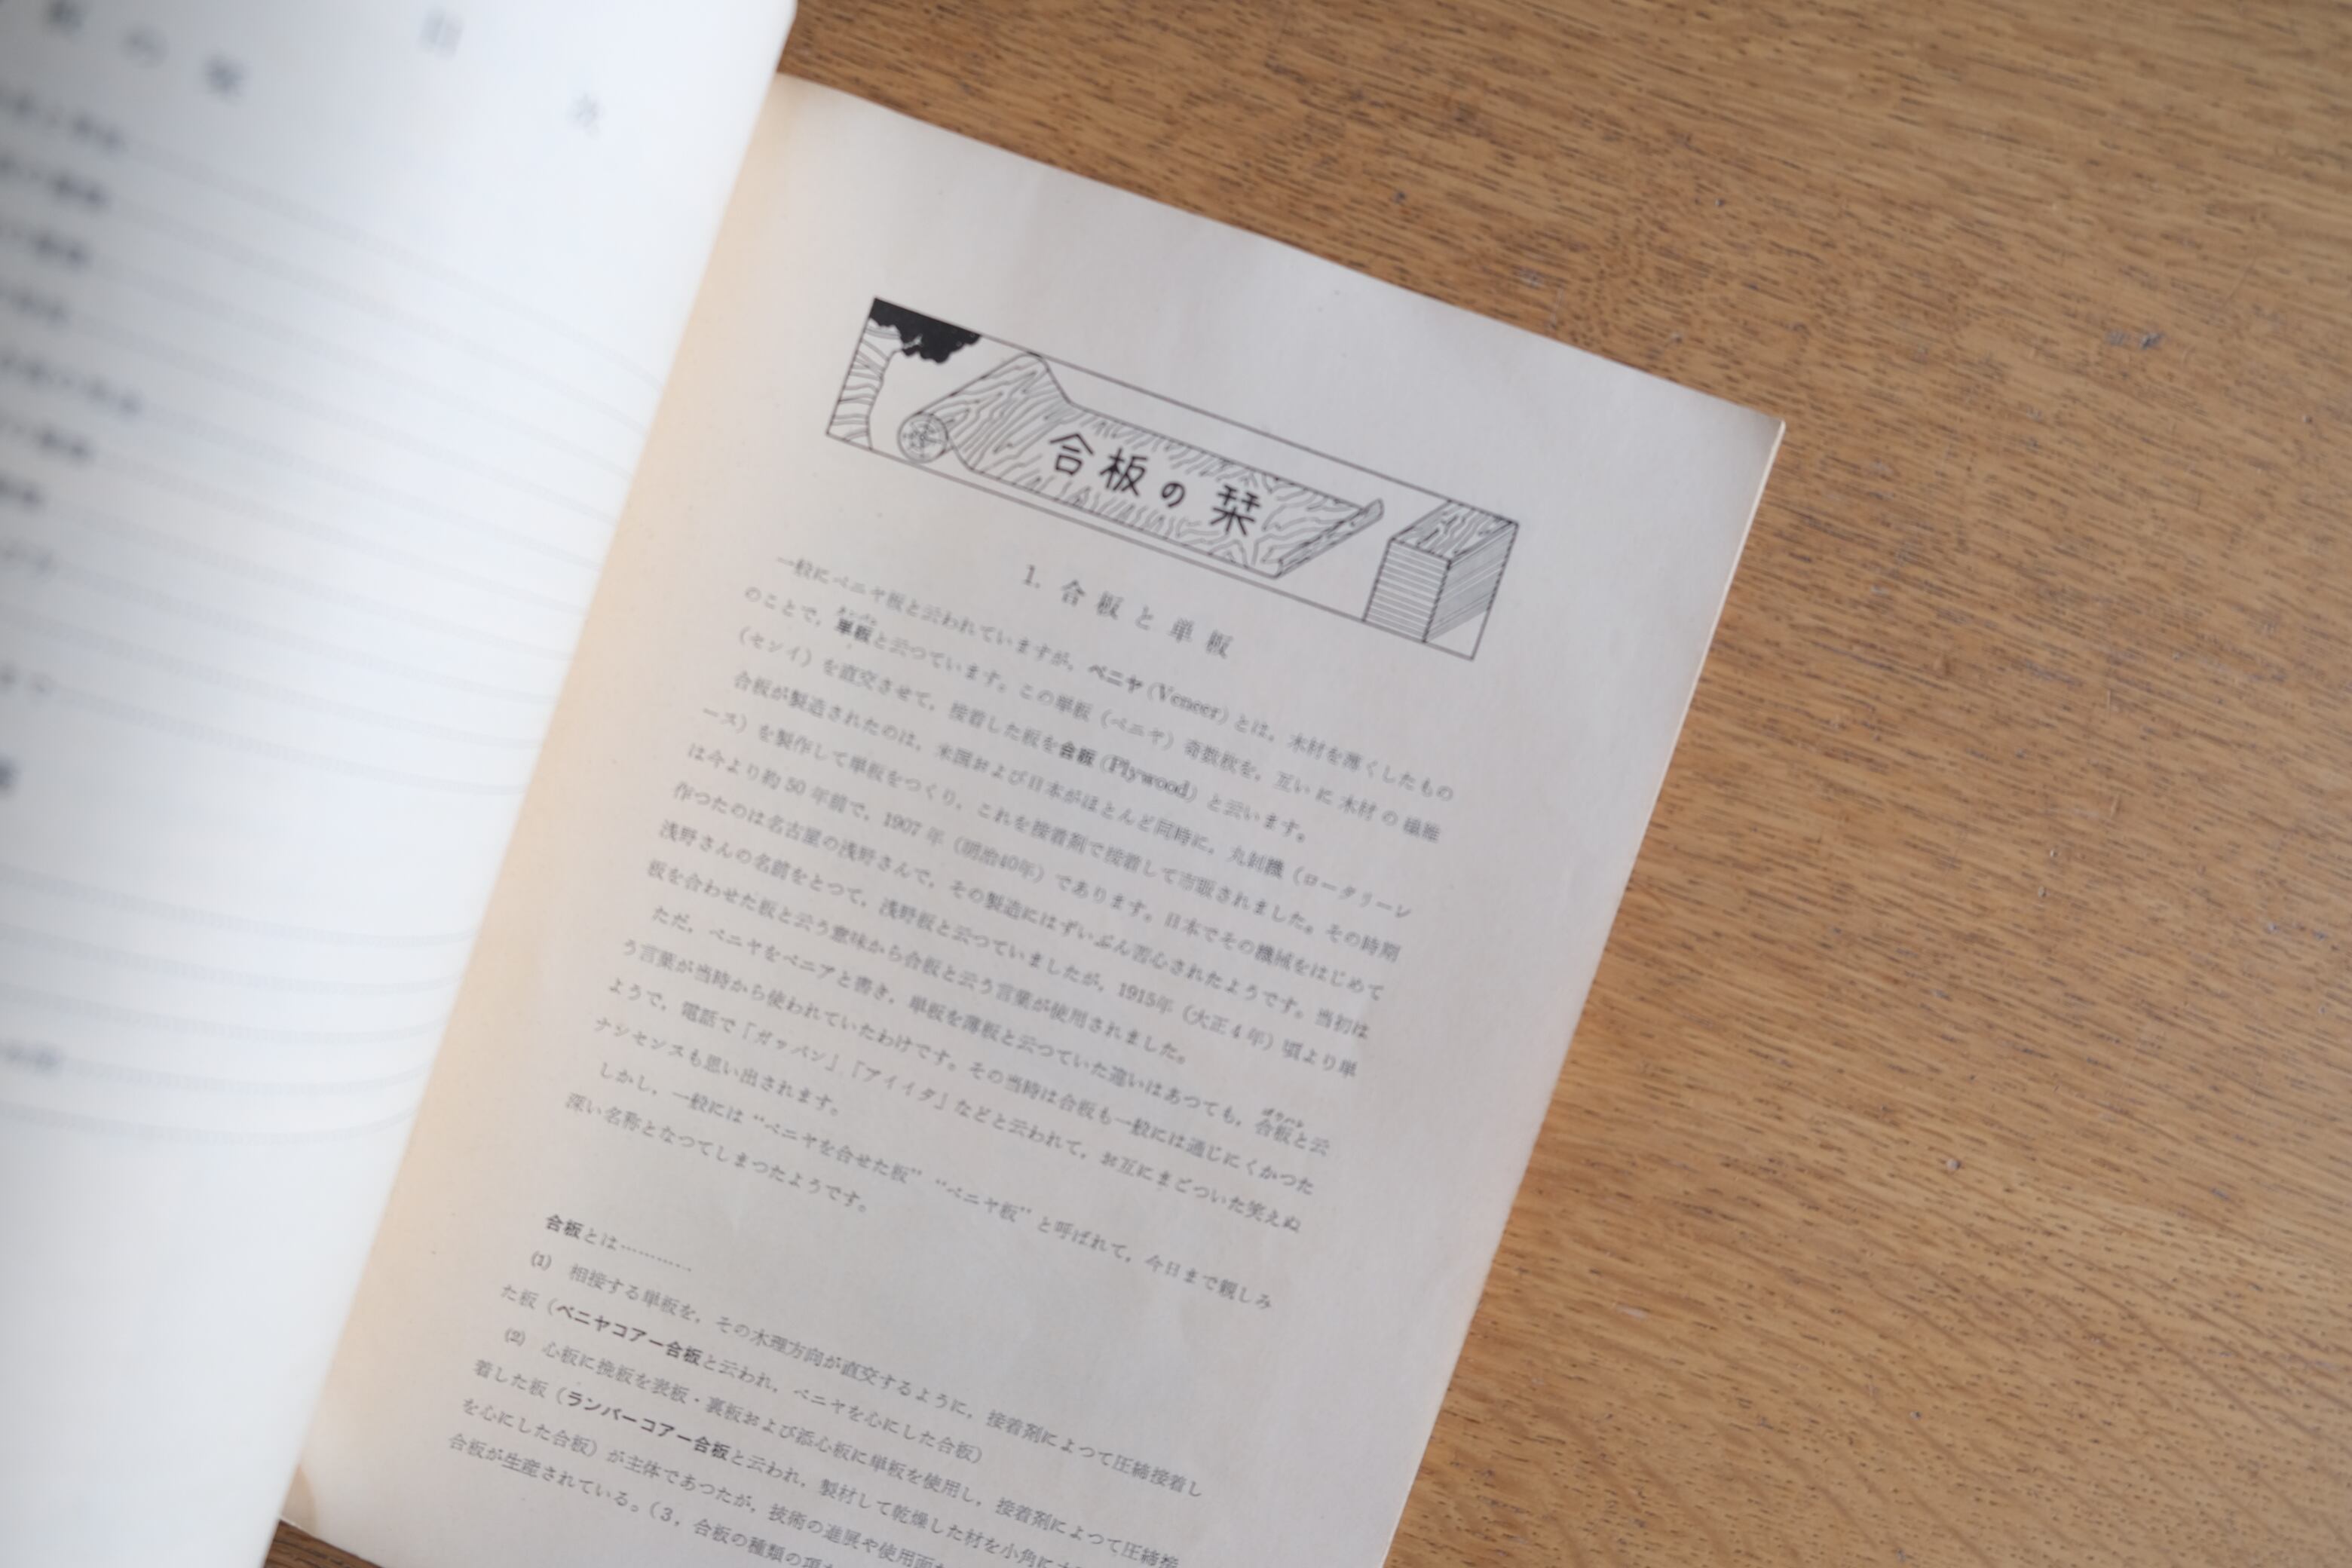 目次
の栞
合板の栞
1. 合板と単板
一般にベニヤ板と云われていますが，ベニヤ (Veneer) とは，木材を薄くしたもの
のことで，単板と云つています。この単板（ベニヤ）奇数枚を，互いに木材の繊維
（センイ）を直交させて，接着した板を合板 (Plywood) と云います。
合板が製造されたのは，米国および日本がほとんど同時に，丸剝機（ロータリーレ
ース）を製作して単板をつくり，これを接着剤で接着して市販されました。その時期
は今より約 50 年前で，1907 年（明治40年）であります。日本でその機械をはじめて
作つたのは名古屋の浅野さんで，その製造にはずいぶん苦心されたようです。当初は
浅野さんの名前をとつて，浅野板と云つていましたが，1915年（大正4年）頃より単
板を合わせた板と云う意味から合板と云う言葉が使用されました。
ただ，ベニヤをベニアと書き，単板を薄板と云つていた違いはあつても，合板と云
う言葉が当時から使われていたわけです。その当時は合板も一般には通じにくかつた
ようで，電話で「ガッパン」「アイイタ」などと云われて，お互にまごついた笑えぬ
ナンセンスも思い出されます。
しかし，一般には“ベニヤを合せた板”“ベニヤ板”と呼ばれて，今日まで親しみ
深い名称となつてしまつたようです。
合板とは…………
(1) 相接する単板を，その木理方向が直交するように，接着剤によつて圧締接着し
た板（ベニヤコアー合板と云われ，ベニヤを心にした合板）
(2) 心板に挽板を表板・裏板および添心板に単板を使用し，接着剤によつて圧締接
着した板（ランバーコアー合板と云われ，製材して乾燥した材を小角に
を心にした合板）が主体であつたが，技術の進展や使用面
合板が生産されている。（3，合板の種類の項